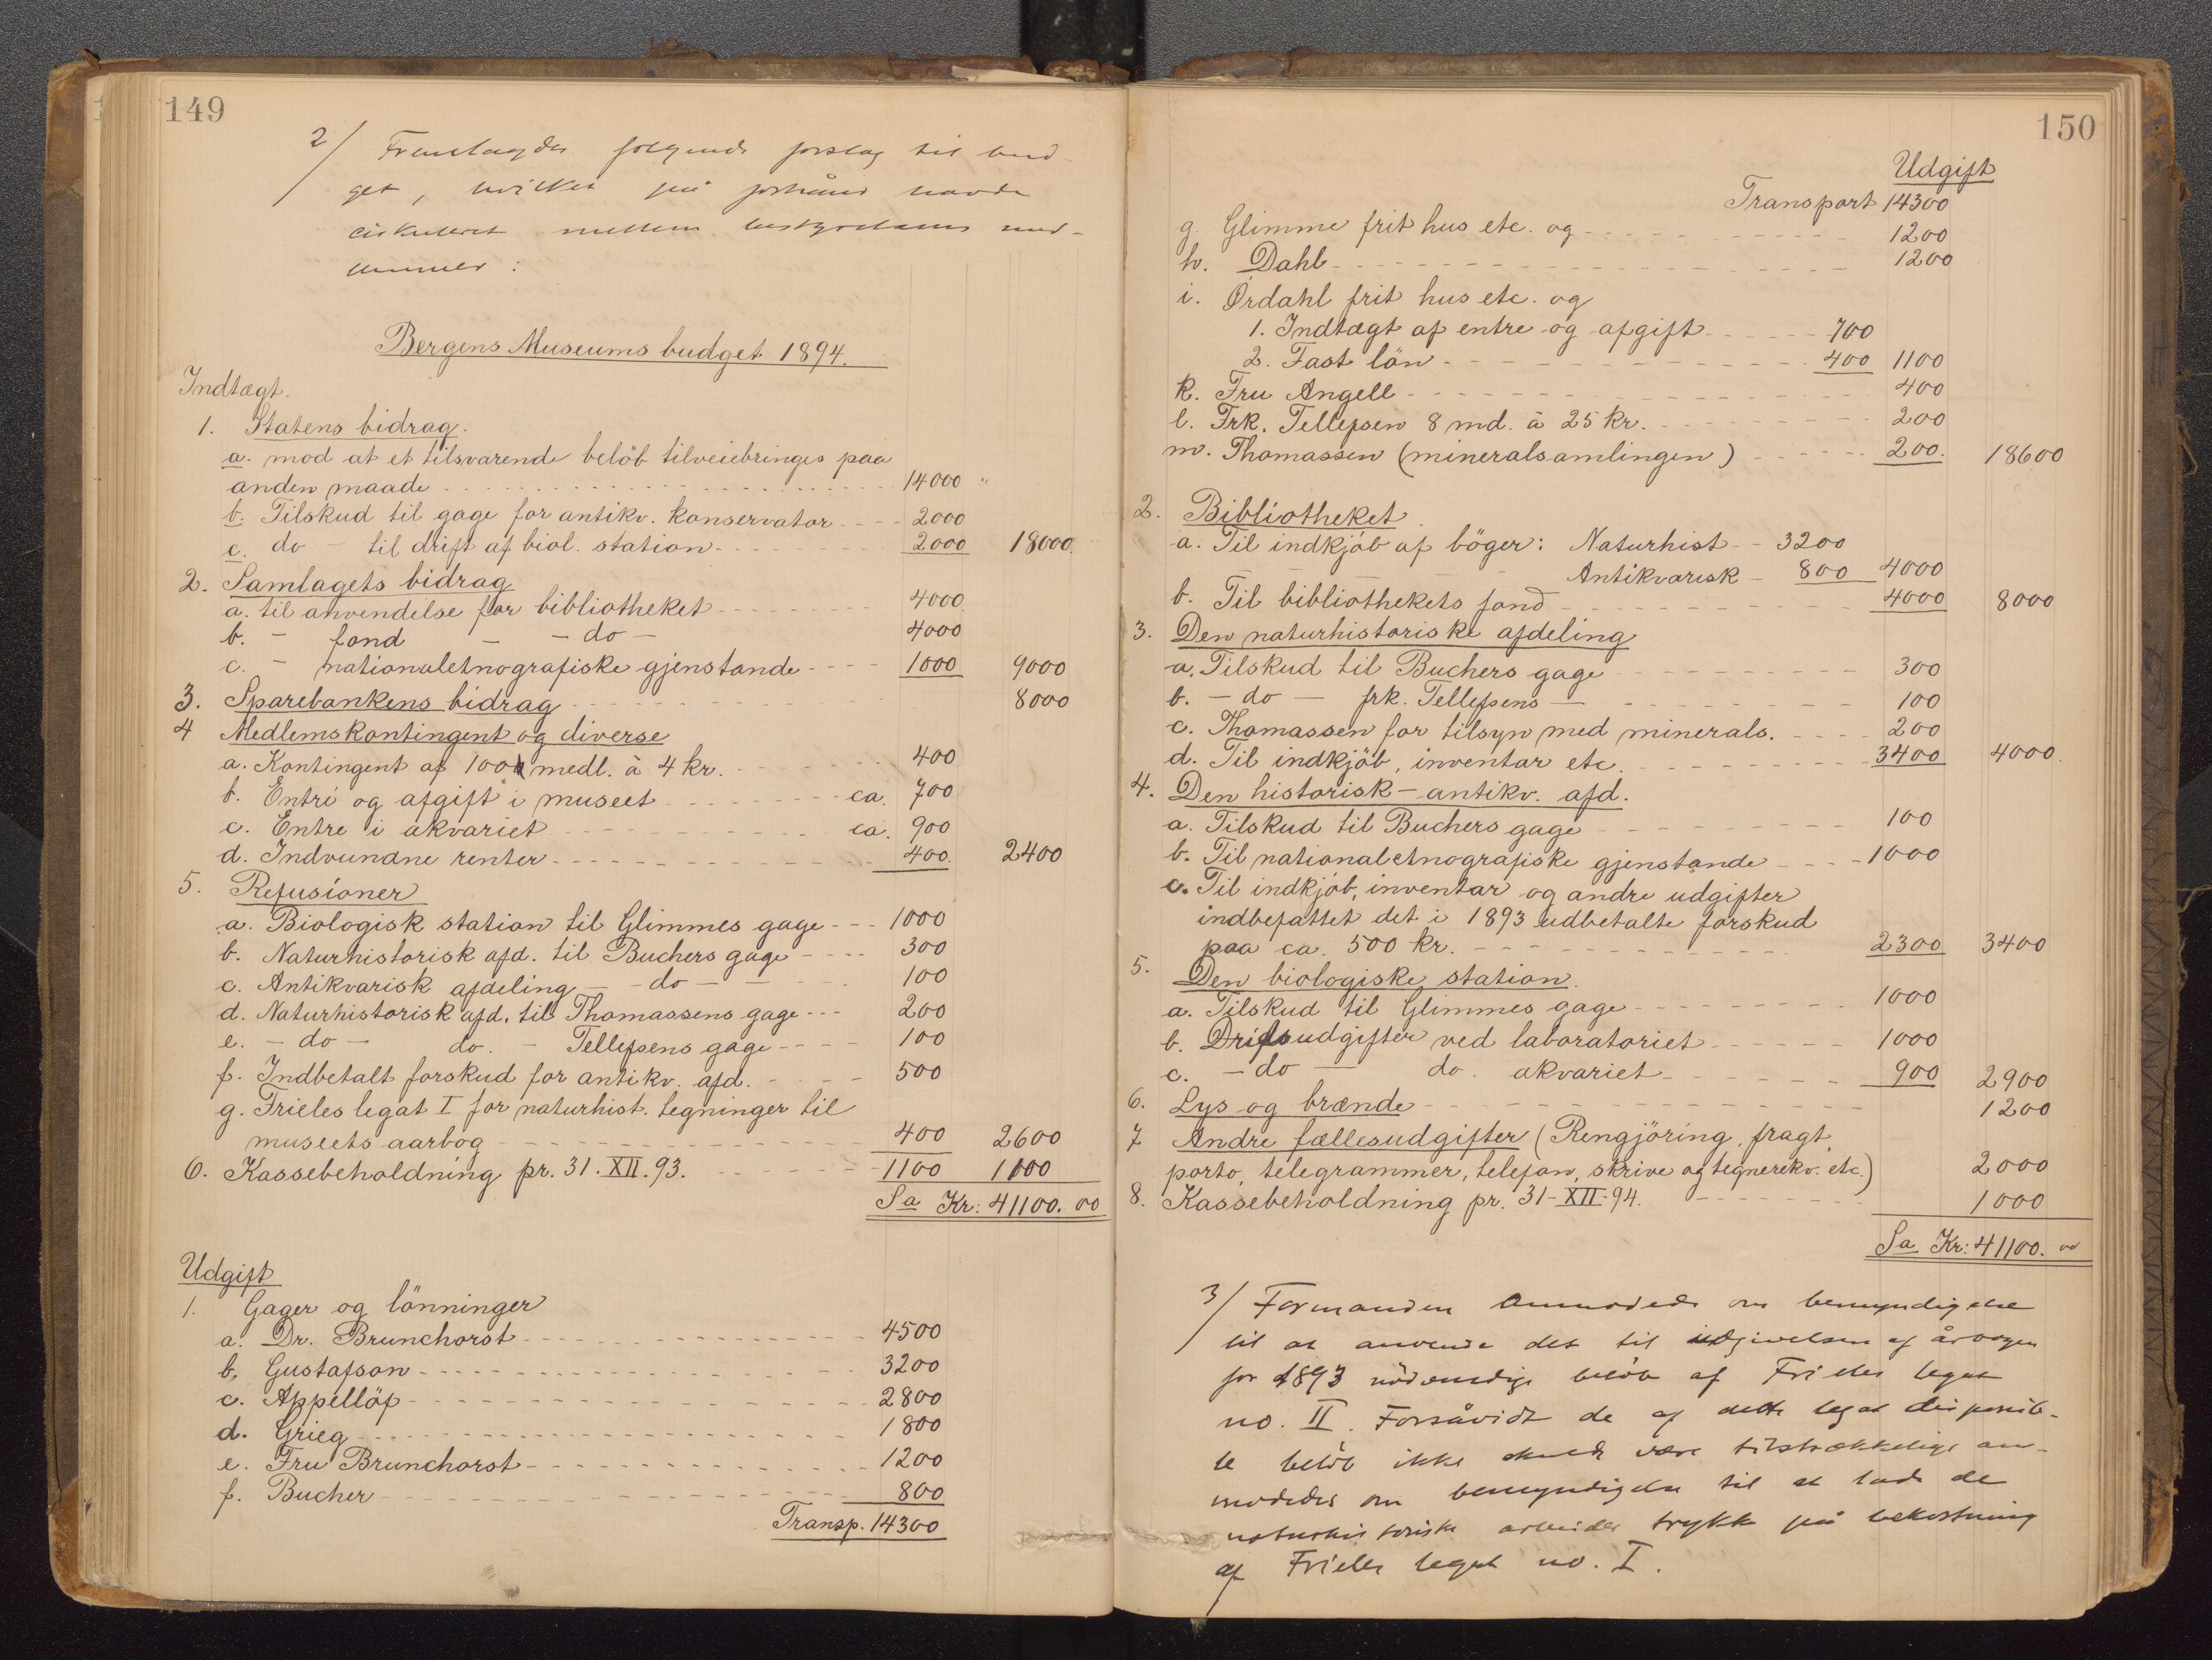 149
2/ Fremlagdes følgende forslag til bud-
get, hvilket på forhånd havde
cirkuleret mellem bestyrelsens med-
lemmer:
Bergens Museums budget 1894.
Indtægt.
1. Statens bidrag.
a. mod at et tilsvarende belöb tilveiebringes paa
anden maade 14000 "
b. Tilskud til gage for antikv. konservator 2000
c. do - til drift af biol. station 2000 18000.
2. Samlagets bidrag
a. til anvendelse for bibliotheket 4000
b. - fond - - do - 4000
c. - nationaletnografiske gjenstande 1000 9000
3. Sparebankens bidrag 8000
4 Medlemskontingent og diverse
a. Kontingent af 100 medl. à 4 kr. 400
b. Entré og afgift i museet ca. 700
c. Entre i akvariet ca. 900
d. Indvundne renter 400. 2400
5. Refusioner
a. Biologisk station til Glimmes gage 1000
b. Naturhistorisk afd. til Buchers gage 300
c. Antikvarisk afdeling - do - 100
d. Naturhistorisk afd. til Thomassens gage 200
e. - do - do. - Tellefsens gage 100
f. Indbetalt forskud for antikv. afd. 500
g. Frieles legat I for naturhist. tegninger til
museets aarbog 400 2600
6. Kassebeholdning pr. 31. XII. 93. 1100 1100
Sa Kr: 41100. 00
Udgift
1. Gager og lönninger
a. Dr. Brunchorst 4500
b. Gustafson 3200
c. Appellöf 2800
d. Grieg 1800
e. Fru Brunchorst 1200
f. Bucher 800
Transp. 14300
150
Udgift
Transport 14300
g. Glimme frit hus etc. og 1200
h. Dahl 1200
i. Ørdahl frit hus etc. og
1. Indtægt af entre og afgift 700
2. Fast lön 400 1100
k. Fru Angell 400
l. Frk. Tellefsen 8 md. à 25 kr. 200
m. Thomassen (mineralsamlingen) 200. 18600
2. Bibliotheket.
a. Til indkjöb af böger: Naturhist 3200
Antikvarisk 800 4000
b. Til bibliothekets fond 4000 8000
3. Den naturhistoriske afdeling
a. Tilskud til Buchers gage 300
b. - do - frk. Tellefsens - 100
c. Thomassen for tilsyn med minerals. 200
d. Til indkjöb, inventar etc. 3400 4000.
4. Den historisk-antikv. afd.
a. Tilskud til Buchers gage 100
b. Til nationaletnografiske gjenstande 1000
c. Til indkjöb, inventar og andre udgifter
indbefattet det i 1893 udbetalte forskud
paa ca. 500 kr. 2300 3400
5. Den biologiske station.
a. Tilskud til Glimmes gage 1000
b. Driftsudgifter ved laboratoriet 1000
c. - do - do. akvariet 900 2900
6. Lys og brænde 1200
7 Andre fællesudgifter (Rengjöring, fragt,
porto, telegrammer, telefon, skrive og tegnerekv. etc.) 2000
8. Kassebeholdning pr. 31-XII-94. 1000
Sa Kr: 41100. 00
3/ Formanden anmodede om bemyndigelse
til at anvende det til udgivelsen af årbogen
for 1893 nödvendige belöb af Frieles legat
no. II. Forsåvidt de af dette legat disponib-
le belöb ikke skulde være tilstrækkelige an-
modedes om bemyndigelse til at lade de
naturhistoriske arbeider trykke på bekostning
af Frieles legat no. I.